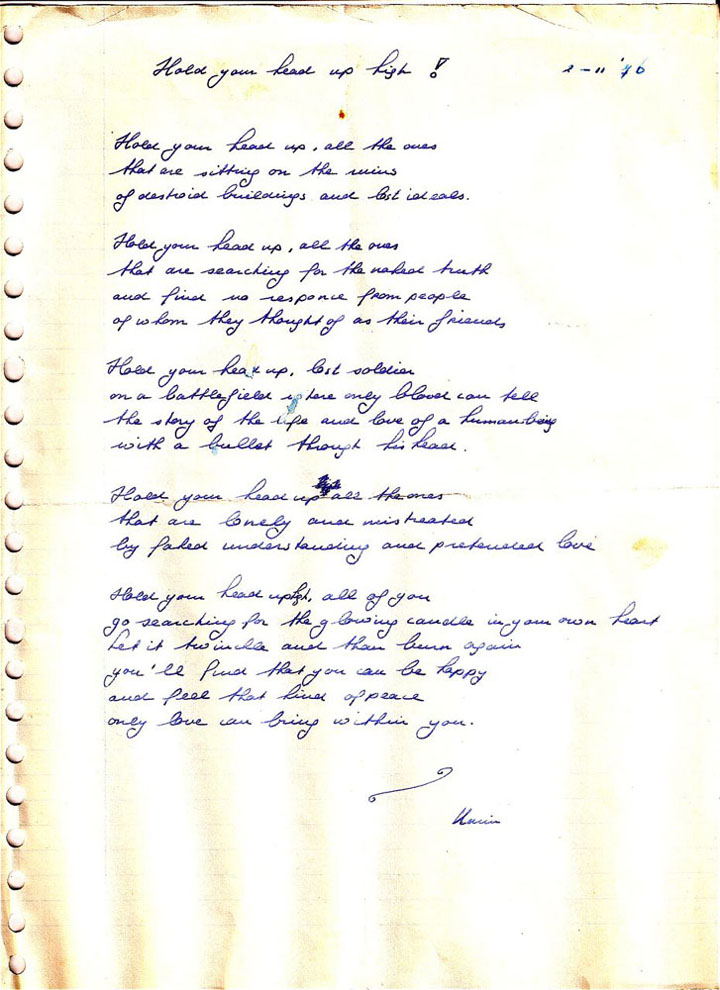 Hold your head up high ! 2-11 '76
Hold your head up, all the ones
that are sitting on the ruins
of destroid buildings and lost ideals.
Hold your head up, all the ones
that are searching for the naked truth
and find no responce from people
of whom they thought of as their friends
Hold your head up, lost soldier
on a battlefield where only blood can tell
the story of the life and love of a human being
with a bullet though his head.
Hold your head up all the ones
that are lonely and mistreated
by faked understanding and pretended love
Hold your head up high, all of you
go searching for the glowing candle in your own heart
Let it twinkle and than burn again
you'll find that you can be happy
and feel that kind of peace
only love can bring within you.
Karin